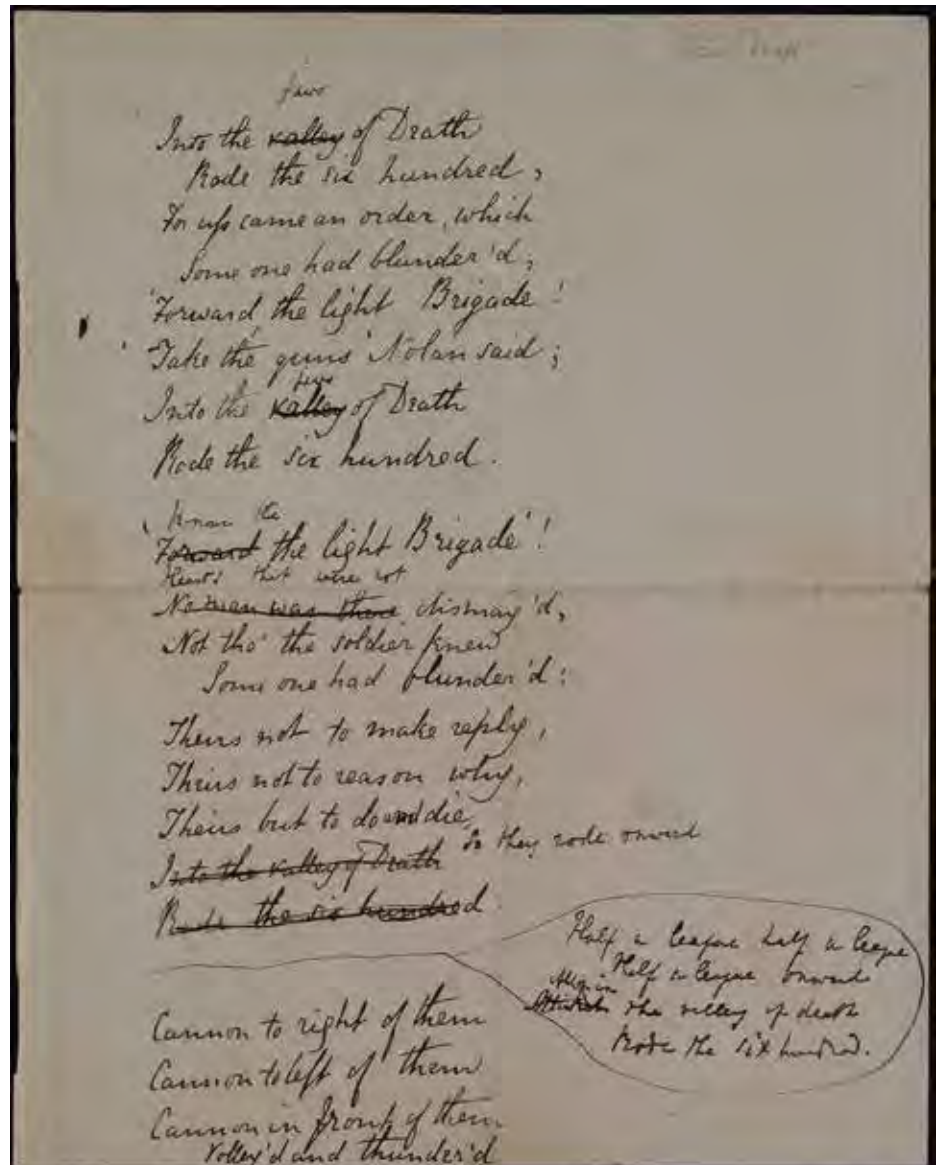 Draft
jaws
Into the valley of Death
Rode the six hundred,
For up came an order, which
Some one had blunder'd;
'Forward, the light Brigade!
'Take the guns' Nolan said;
jaws
Into the valley of Death
Rode the six hundred.
Know the
'Forward the light Brigade'!
Hearts that were not
No man was there dismay'd,
Not tho' the soldier knew
Some one had blunder'd:
Theirs not to make reply,
Theirs not to reason why,
Theirs but to do and die,
So they rode onward
Into the valley of Death
Rode the six hundred.
Half a league half a league
Half a league onward
All in
the valley of death
Rode the six hundred.
Cannon to right of them
Cannon to left of them
Cannon in front of them
Volley'd and thunder'd